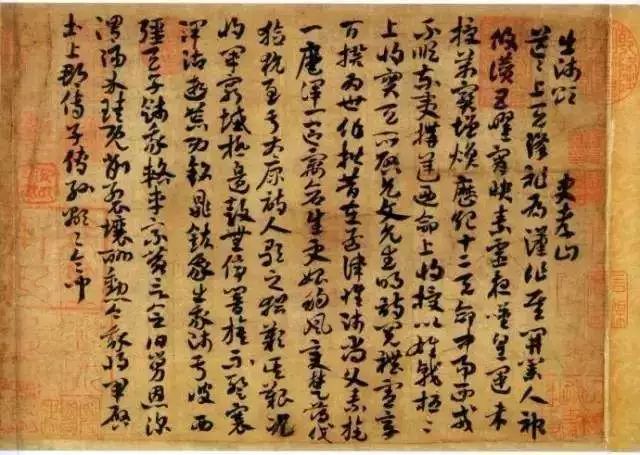 出師頌 史孝山
茫茫上天降祚為漢作基開業人神
攸讚五曜宵映素靈夜嘆皇運未
授萬寶增煥歷紀十二天命中易西戎
不順東夷構逆乃命上將授以雄戟桓桓
上將寔天所啓允文允武明詩閱禮憲章
百揆為世作楷昔在孟津惟師尚父素旄
一麾渾一區宇蒼生更始朔風變楚薄伐
獫狁至于太原詩人歌之猶歎其艱況
我將軍窮城極邊鼓無停響旗不蹔褰
澤沾遐荒功銘鼎鉉我出我師于彼西
疆天子餞我輅車乘黃言念舊舅恩深
渭陽介珪既削裂壤酬勳今我將軍啓
土上郡傳子傳孫顯顯令問